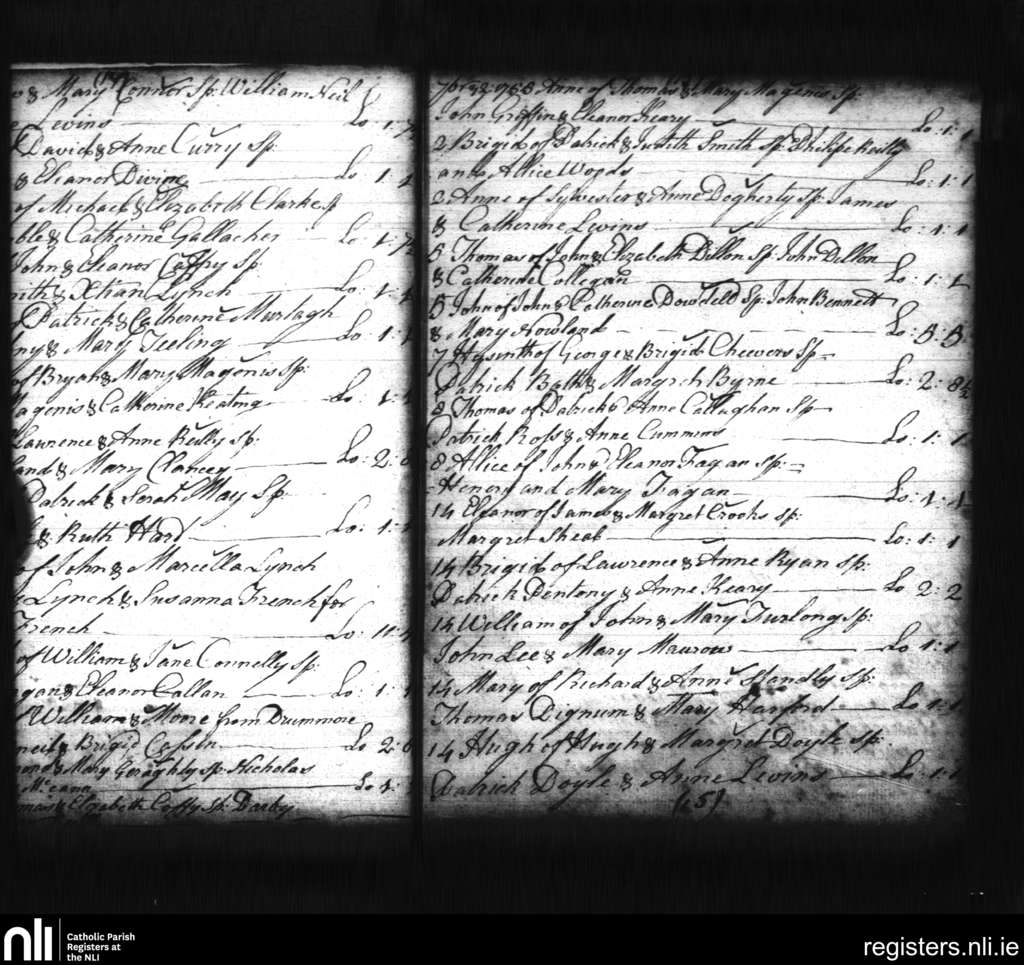 & Mary Connor Sp: William Neil
Levins Lo 1:7½
David & Anne Curry Sp:
& Eleanor Divine Lo 1:1
of Michael & Elizabeth Clarke Sp
ble & Catherine Gallacher Lo 1:7½
John & Eleanor Caffry Sp:
ith & Xtian Lynch Lo: 1:1
Patrick & Catherine Murtagh
ny & Mary Teeling Lo: 1:1
of Bryan & Mary Magenis Sp:
agenis & Catherine Keating Lo: 1:1
Lawrence & Anne Reilly Sp:
and & Mary Clancey Lo: 2:
Patrick & Sorah May Sp:
& Ruth Hard Lo: 1:1
of John & Marcella Lynch
Lynch & Susanna French for
French Lo: 11:4
of William & Jane Connelly Sp:
gan & Eleanor Callan Lo: 1:1
William & Moore from Drummore
neil & Brigid Cassin Lo 2:
mond & Mary Geraghty Sp: Nicholas
Lo 1:
mas & Elizabeth Coffy Sp: Darby
7br Anne of Thomas & Mary Magenis Sp:
John Griffin & Eleanor Keary Lo: 1:1
2 Brigid of Patrick & Judith Smith Sp: Philipe Reilly
and Allice Woods Lo: 1:1
2 Anne of Sylvester & Anne Dogherty Sp: James
& Catherine Levins Lo: 1:1
5 Thomas of John & Elizabeth Dillon Sp: John Dillon
& Catherine Collegan Lo: 1:1
5 John of John & Catherine Dowdell Sp: John Bennett
& Mary Nowland Lo: 5:5
7 Hysinth of George & Brigid Cheevers Sp=
Patrick Bath & Margreh Byrne Lo: 2:8½
8 Thomas of Patrick & Anne Callaghan Sp
Patrick Ross & Anne Cummins Lo: 1:1
8 Allice of John & Eleanor Fagan Sp:=
Henery and Mary Fagan Lo: 1:1
14 Eleanor of James & Margret Crooks Sp:
Margret Sheal Lo: 1:1
14 Brigid of Lawrence & Anne Ryan Sp:
Patrick Dentony & Anne Keary Lo 2:2
14 William of John & Mary Furlong Sp:
John Lee & Mary Maurow Lo 1:1
14 Mary of Richard & Anne Handly Sp:
Thomas Dignum & Mary Harford Lo: 1:1
14 Hugh of Hugh & Margret Doyle Sp:
Patrick Doyle & Anne Levins Lo: 1:1
(15)
nli
Catholic Parish
Registers at
the NLI
registers.nli.ie